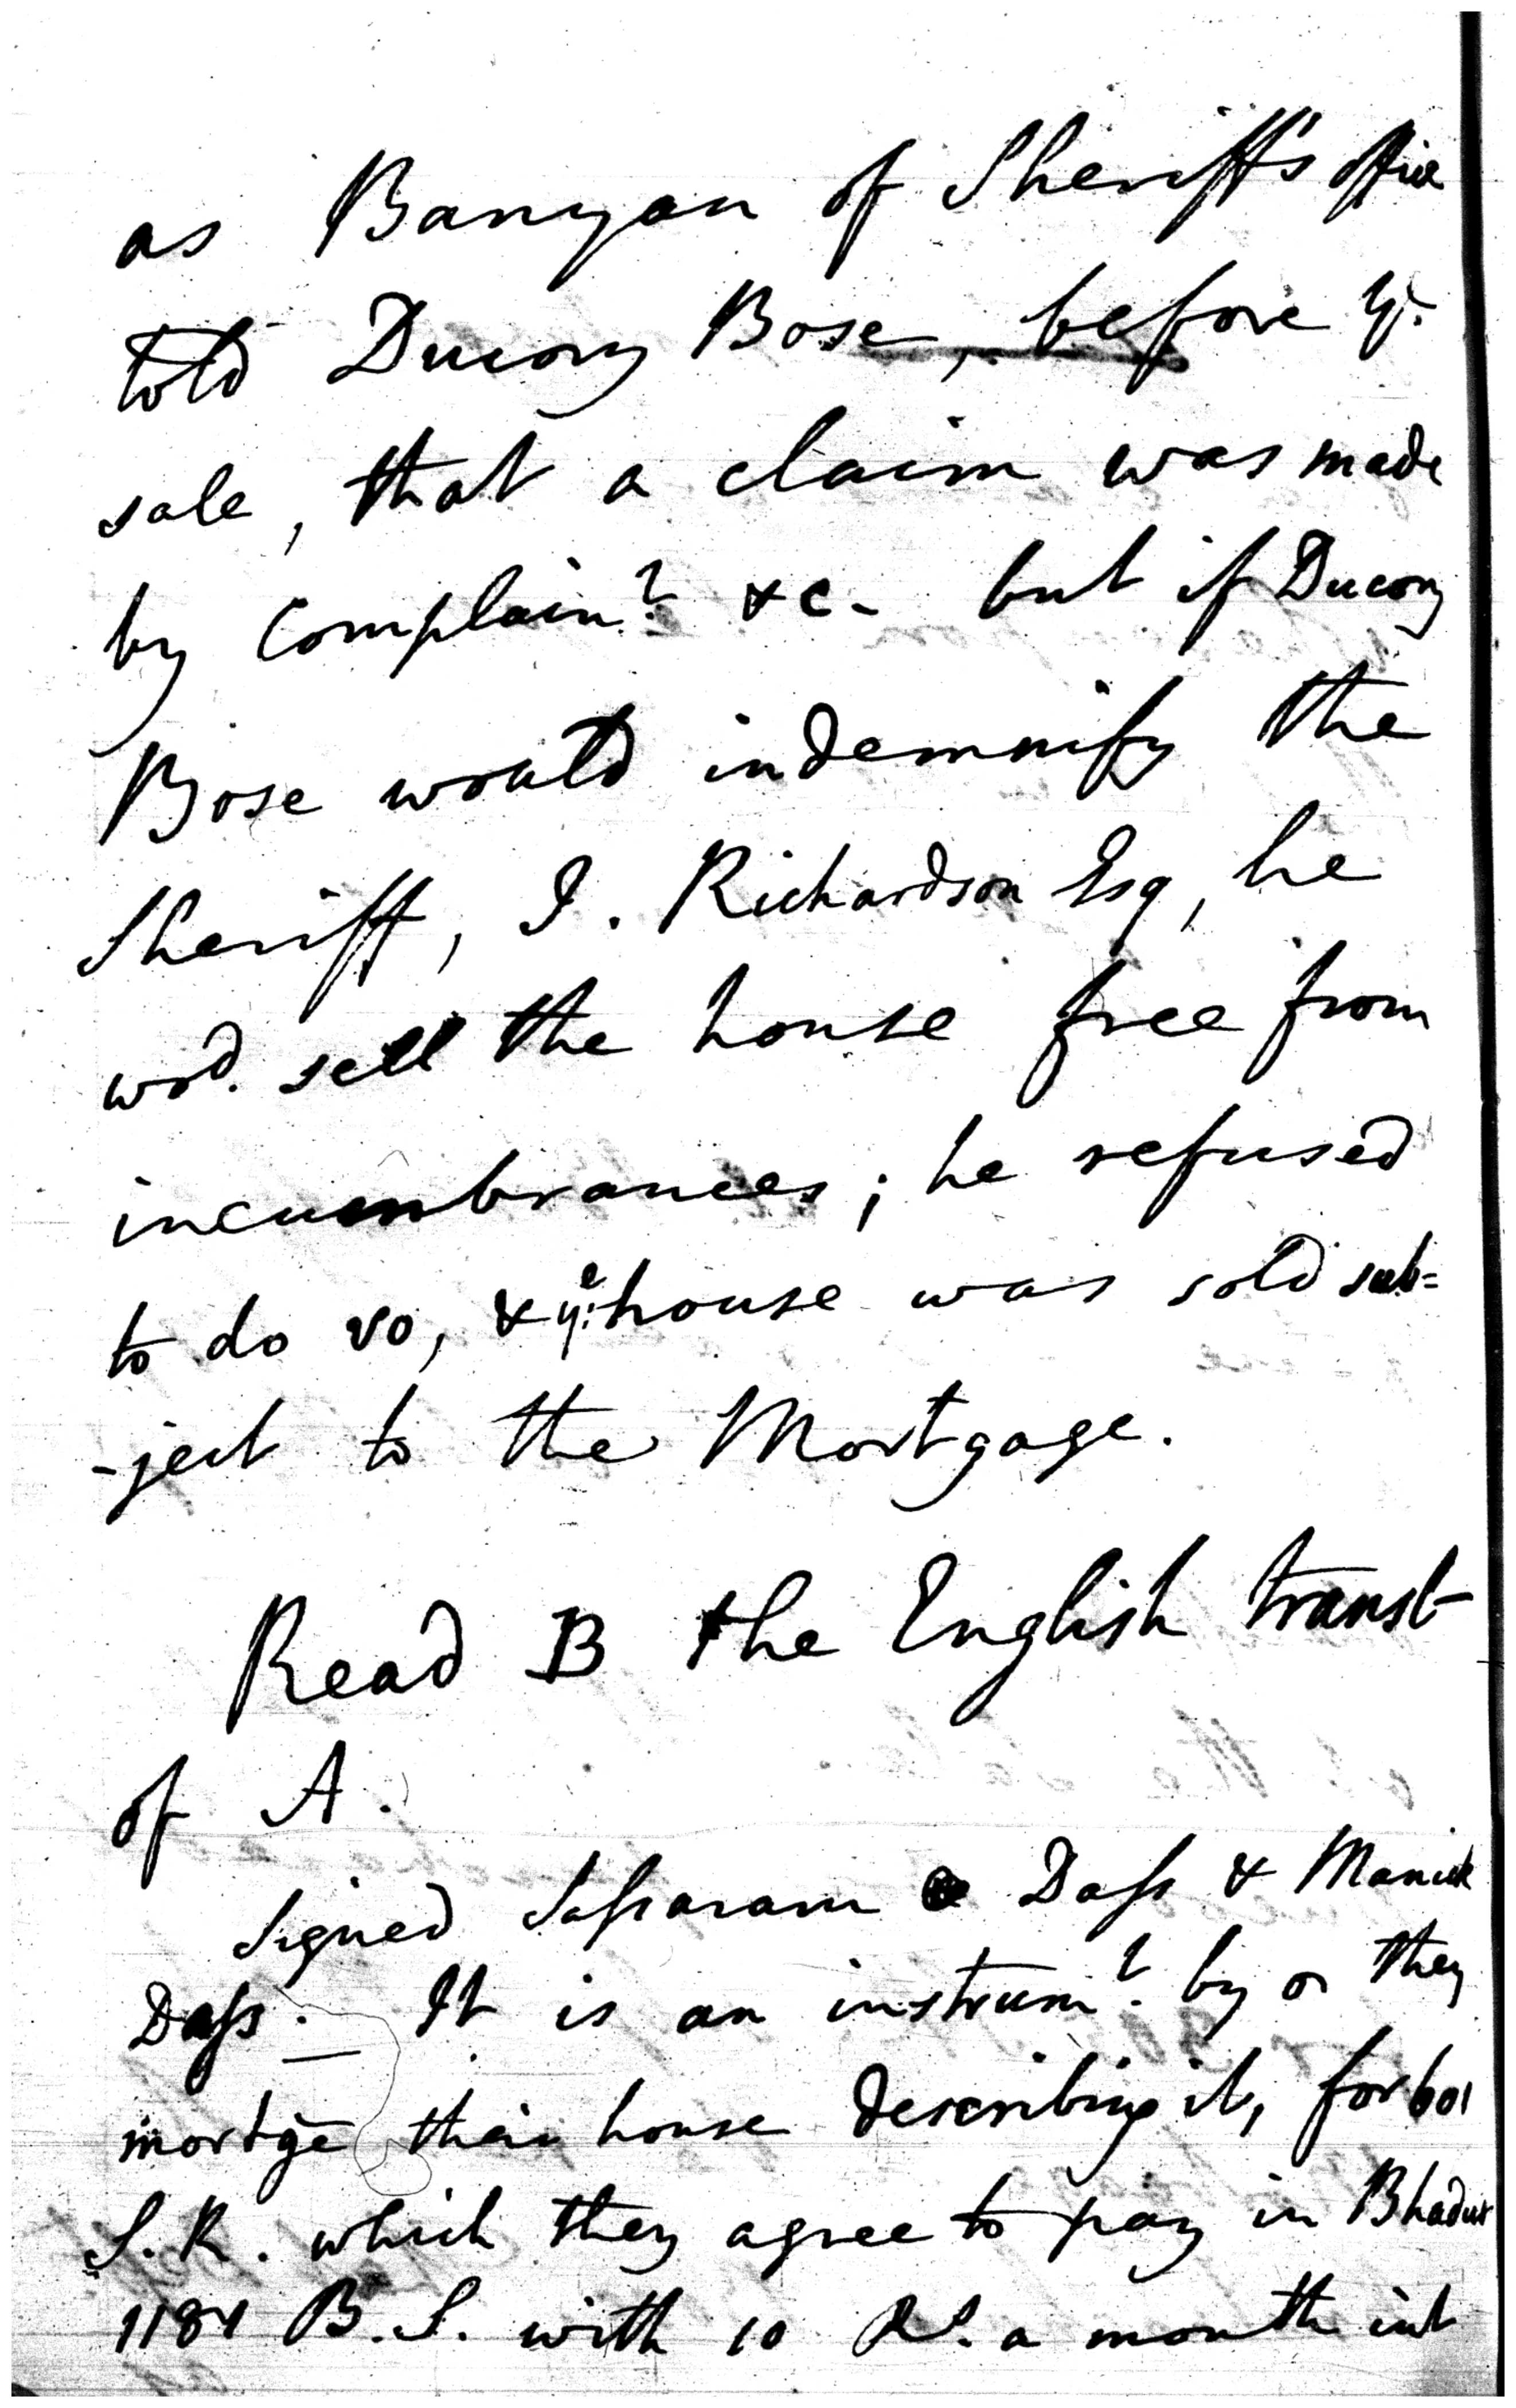 as Banyan of Sheriff's office
told Ducory Bose, before ye.
sale, that a claim was made
by Complaint. &c - but if Ducory
Bose would indemnify the
Sheriff, J. Richardson Esq, he
wod. sell the house free from
incumbrances; he refused
to do so, & ye. house was sold sub=
-ject to the Mortgage.
Read B the English transl-
of A.
Signed Saſsaram Daſs & Manick
Daſs. — It is an instrumt. by they
mortge their house describing it, for 601
S. R. which they agree to pay in Bhadur
1184 B. S. with 10 Rs. a month int